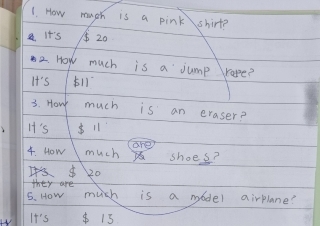 1. How much is a pink shirt?
It's $ 20.
2. How much is a jump rope?
It's $11
3. How much is an eraser?
It's $ 11
4. How much are shoes?
It's $ 20
they are
5. How much is a model airplane?
It's $ 15